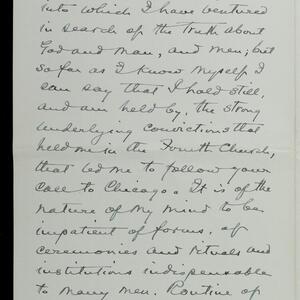 into which I have ventured
in search of the truth about
God and man, and men; but
so far as I know myself, I
can say that I hold still,
and am held by, the strong
underlying convictions that
held me in the Fourth Church,
that led me to follow your
call to Chicago. It is of the
nature of my mind to be
impatient of forms, of
ceremonies and rituals and
institutions indispensable
to many men. Routine of